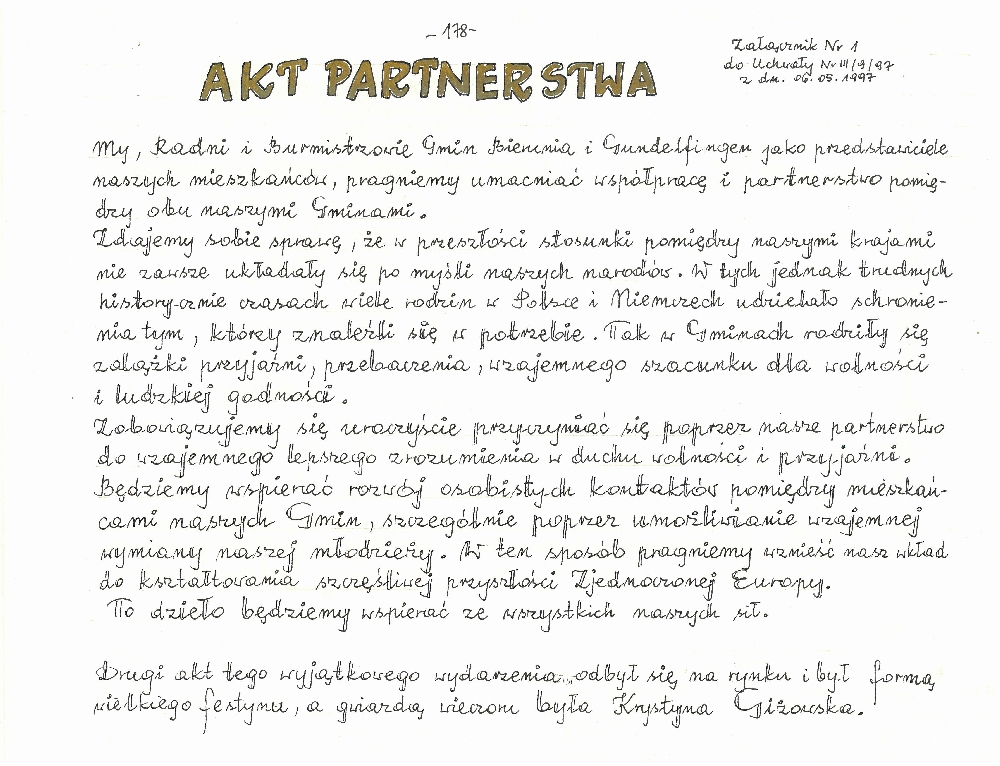 - 178 -
Załącznik Nr 1
do Uchwały Nr III/9/97
z dn. 06.05.1997
AKT PARTNERSTWA
My, Radni i Burmistrzowie Gmin Bierunia i Gundelfingen jako przedstawiciele
naszych mieszkańców, pragniemy umacniać współpracę i partnerstwo pomię-
dzy obu naszymi Gminami.
Zdajemy sobie sprawę, że w przeszłości stosunki pomiędzy naszymi krajami
nie zawsze układały się po myśli naszych narodów. W tych jednak trudnych
historycznie czasach wiele rodzin w Polsce i Niemczech udzielało schronie-
nia tym, którzy znaleźli się w potrzebie. Tak w Gminach rodziły się
zalążki przyjaźni, przebaczenia, wzajemnego szacunku dla wolności
i ludzkiej godności.
Zobowiązujemy się uroczyście przyczyniać się poprzez nasze partnerstwo
do wzajemnego lepszego zrozumienia w duchu wolności i przyjaźni.
Będziemy wspierać rozwój osobistych kontaktów pomiędzy mieszkań-
cami naszych Gmin, szczególnie poprzez umożliwianie wzajemnej
wymiany naszej młodzieży. W ten sposób pragniemy wznieść nasz wkład
do kształtowania szczęśliwej przyszłości Zjednoczonej Europy.
To dzieło będziemy wspierać ze wszystkich naszych sił.
Drugi akt tego wyjątkowego wydarzenia odbył się na rynku i był formą
wielkiego festynu, a gwiazdą wieczoru była Krystyna Giżowska.